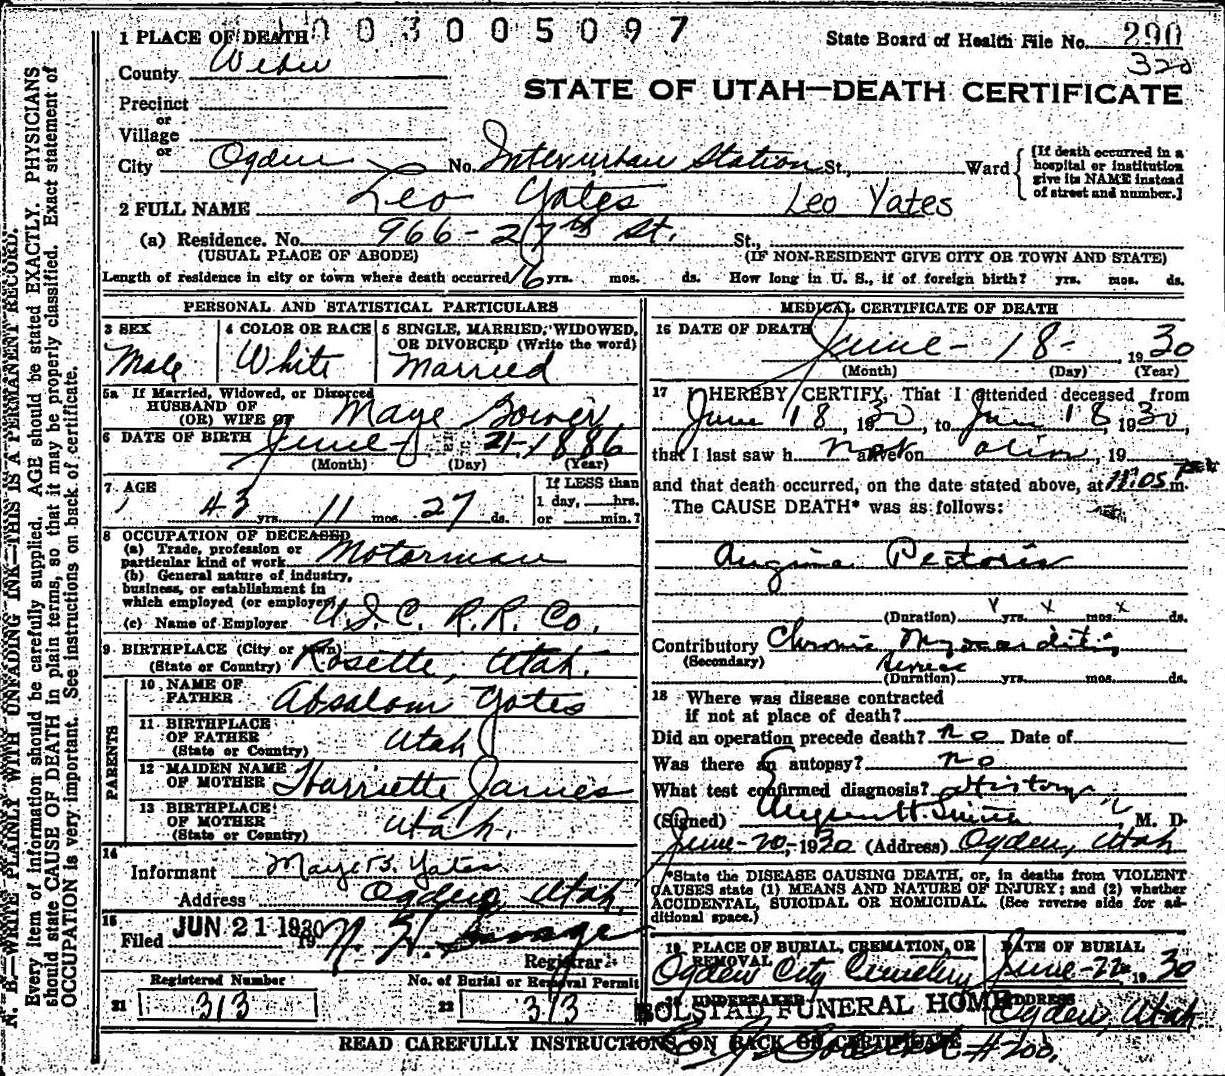 1 PLACE OF DEATH 003005097
State Board of Health File No. 290
320
County Weber
STATE OF UTAH—DEATH CERTIFICATE
Precinct
or
Village
or
City Ogden No. Interurban Station St., Ward [If death occurred in a hospital or institution give its NAME instead of street and number.]
2 FULL NAME Leo Yates Leo Yates
(a) Residence. No. 966-27th St. St.,
(USUAL PLACE OF ABODE) (IF NON-RESIDENT GIVE CITY OR TOWN AND STATE)
Length of residence in city or town where death occurred 16 yrs. mos. ds. How long in U. S., if of foreign birth? yrs. mos. ds.
PERSONAL AND STATISTICAL PARTICULARS
3 SEX
Male
4 COLOR OR RACE
White
5 SINGLE, MARRIED, WIDOWED,
OR DIVORCED (Write the word)
Married
5a If Married, Widowed, or Divorced
HUSBAND OF
(OR) WIFE OF Maye Gower
6 DATE OF BIRTH June 21-1886
(Month) (Day) (Year)
7 AGE
43 yrs. 11 mos. 27 ds.
If LESS than
1 day, hrs.
or min.?
8 OCCUPATION OF DECEASED
(a) Trade, profession or
particular kind of work Motorman
(b) General nature of industry,
business, or establishment in
which employed (or employer)
(c) Name of Employer U.I.C. R.R. Co.
9. BIRTHPLACE (City or town)
(State or Country) Rosette, Utah.
PARENTS
10 NAME OF
FATHER Absalom Yates
11 BIRTHPLACE
OF FATHER
(State or Country) Utah
12 MAIDEN NAME
OF MOTHER Harriette James
13 BIRTHPLACE
OF MOTHER
(State or Country) Utah.
14
Informant Maye B. Yates
Address Ogden, Utah.
15
Filed JUN 21 1930 19
Registrar
Registered Number
21 313
No. of Burial or Removal Permit
22 313
MEDICAL CERTIFICATE OF DEATH
16 DATE OF DEATH
June - 18 - , 1930
(Month) (Day) (Year)
17 I HEREBY CERTIFY, That I attended deceased from
June 18, 1930, to June 18, 1930,
that I last saw h not alive on alive, 19
and that death occurred, on the date stated above, at 11:05 P m.
The CAUSE DEATH* was as follows:
Angina Pectoris
(Duration) yrs. x mos. x ds.
Contributory Chronic Myocarditis
(Secondary)
(Duration) yrs. mos. ds.
18 Where was disease contracted
if not at place of death?
Did an operation precede death? no Date of
Was there an autopsy? no
What test confirmed diagnosis? History
(Signed) M. D.
June-20, 1930 (Address) Ogden, Utah
*State the DISEASE CAUSING DEATH, or, in deaths from VIOLENT
CAUSES state (1) MEANS AND NATURE OF INJURY; and (2) whether
ACCIDENTAL, SUICIDAL OR HOMICIDAL. (See reverse side for additional space.)
19 PLACE OF BURIAL, CREMATION, OR
REMOVAL
Ogden City Cemetery
DATE OF BURIAL
June-22 1930
20 UNDERTAKER
BOLSTAD FUNERAL HOME
ADDRESS
Ogden, Utah
#200.
READ CAREFULLY INSTRUCTIONS ON BACK OF CERTIFICATE
N. B.—WRITE PLAINLY WITH UNFADING INK—THIS IS A PERMANENT RECORD.
Every item of information should be carefully supplied. AGE should be stated EXACTLY. PHYSICIANS
should state CAUSE OF DEATH in plain terms, so that it may be properly classified. Exact statement of
OCCUPATION is very important. See instructions on back of certificate.